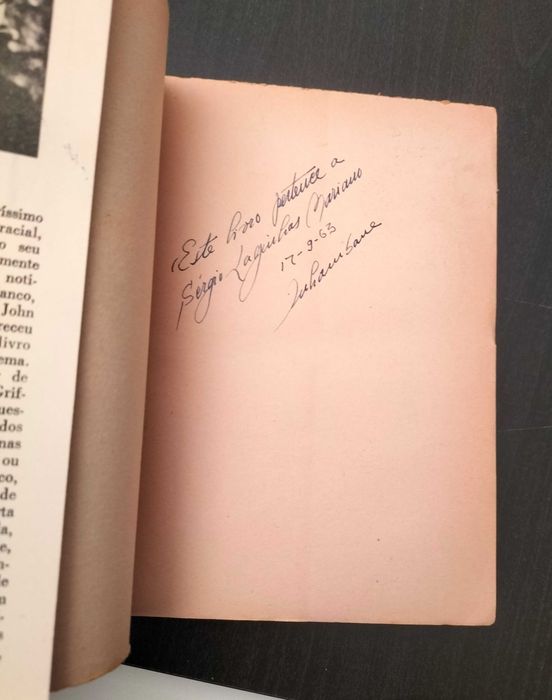 íssimo
racial,
o seu
mente
noti-
anco,
John
receu
livro
ema.
de
Grif-
ques-
dos
nas
ou
co,
de
ta
a,
e,
n-
e
n
-
s
.
Este livro pertence a
Sérgio Laginhas Mariano
17-9-63
Inhambane